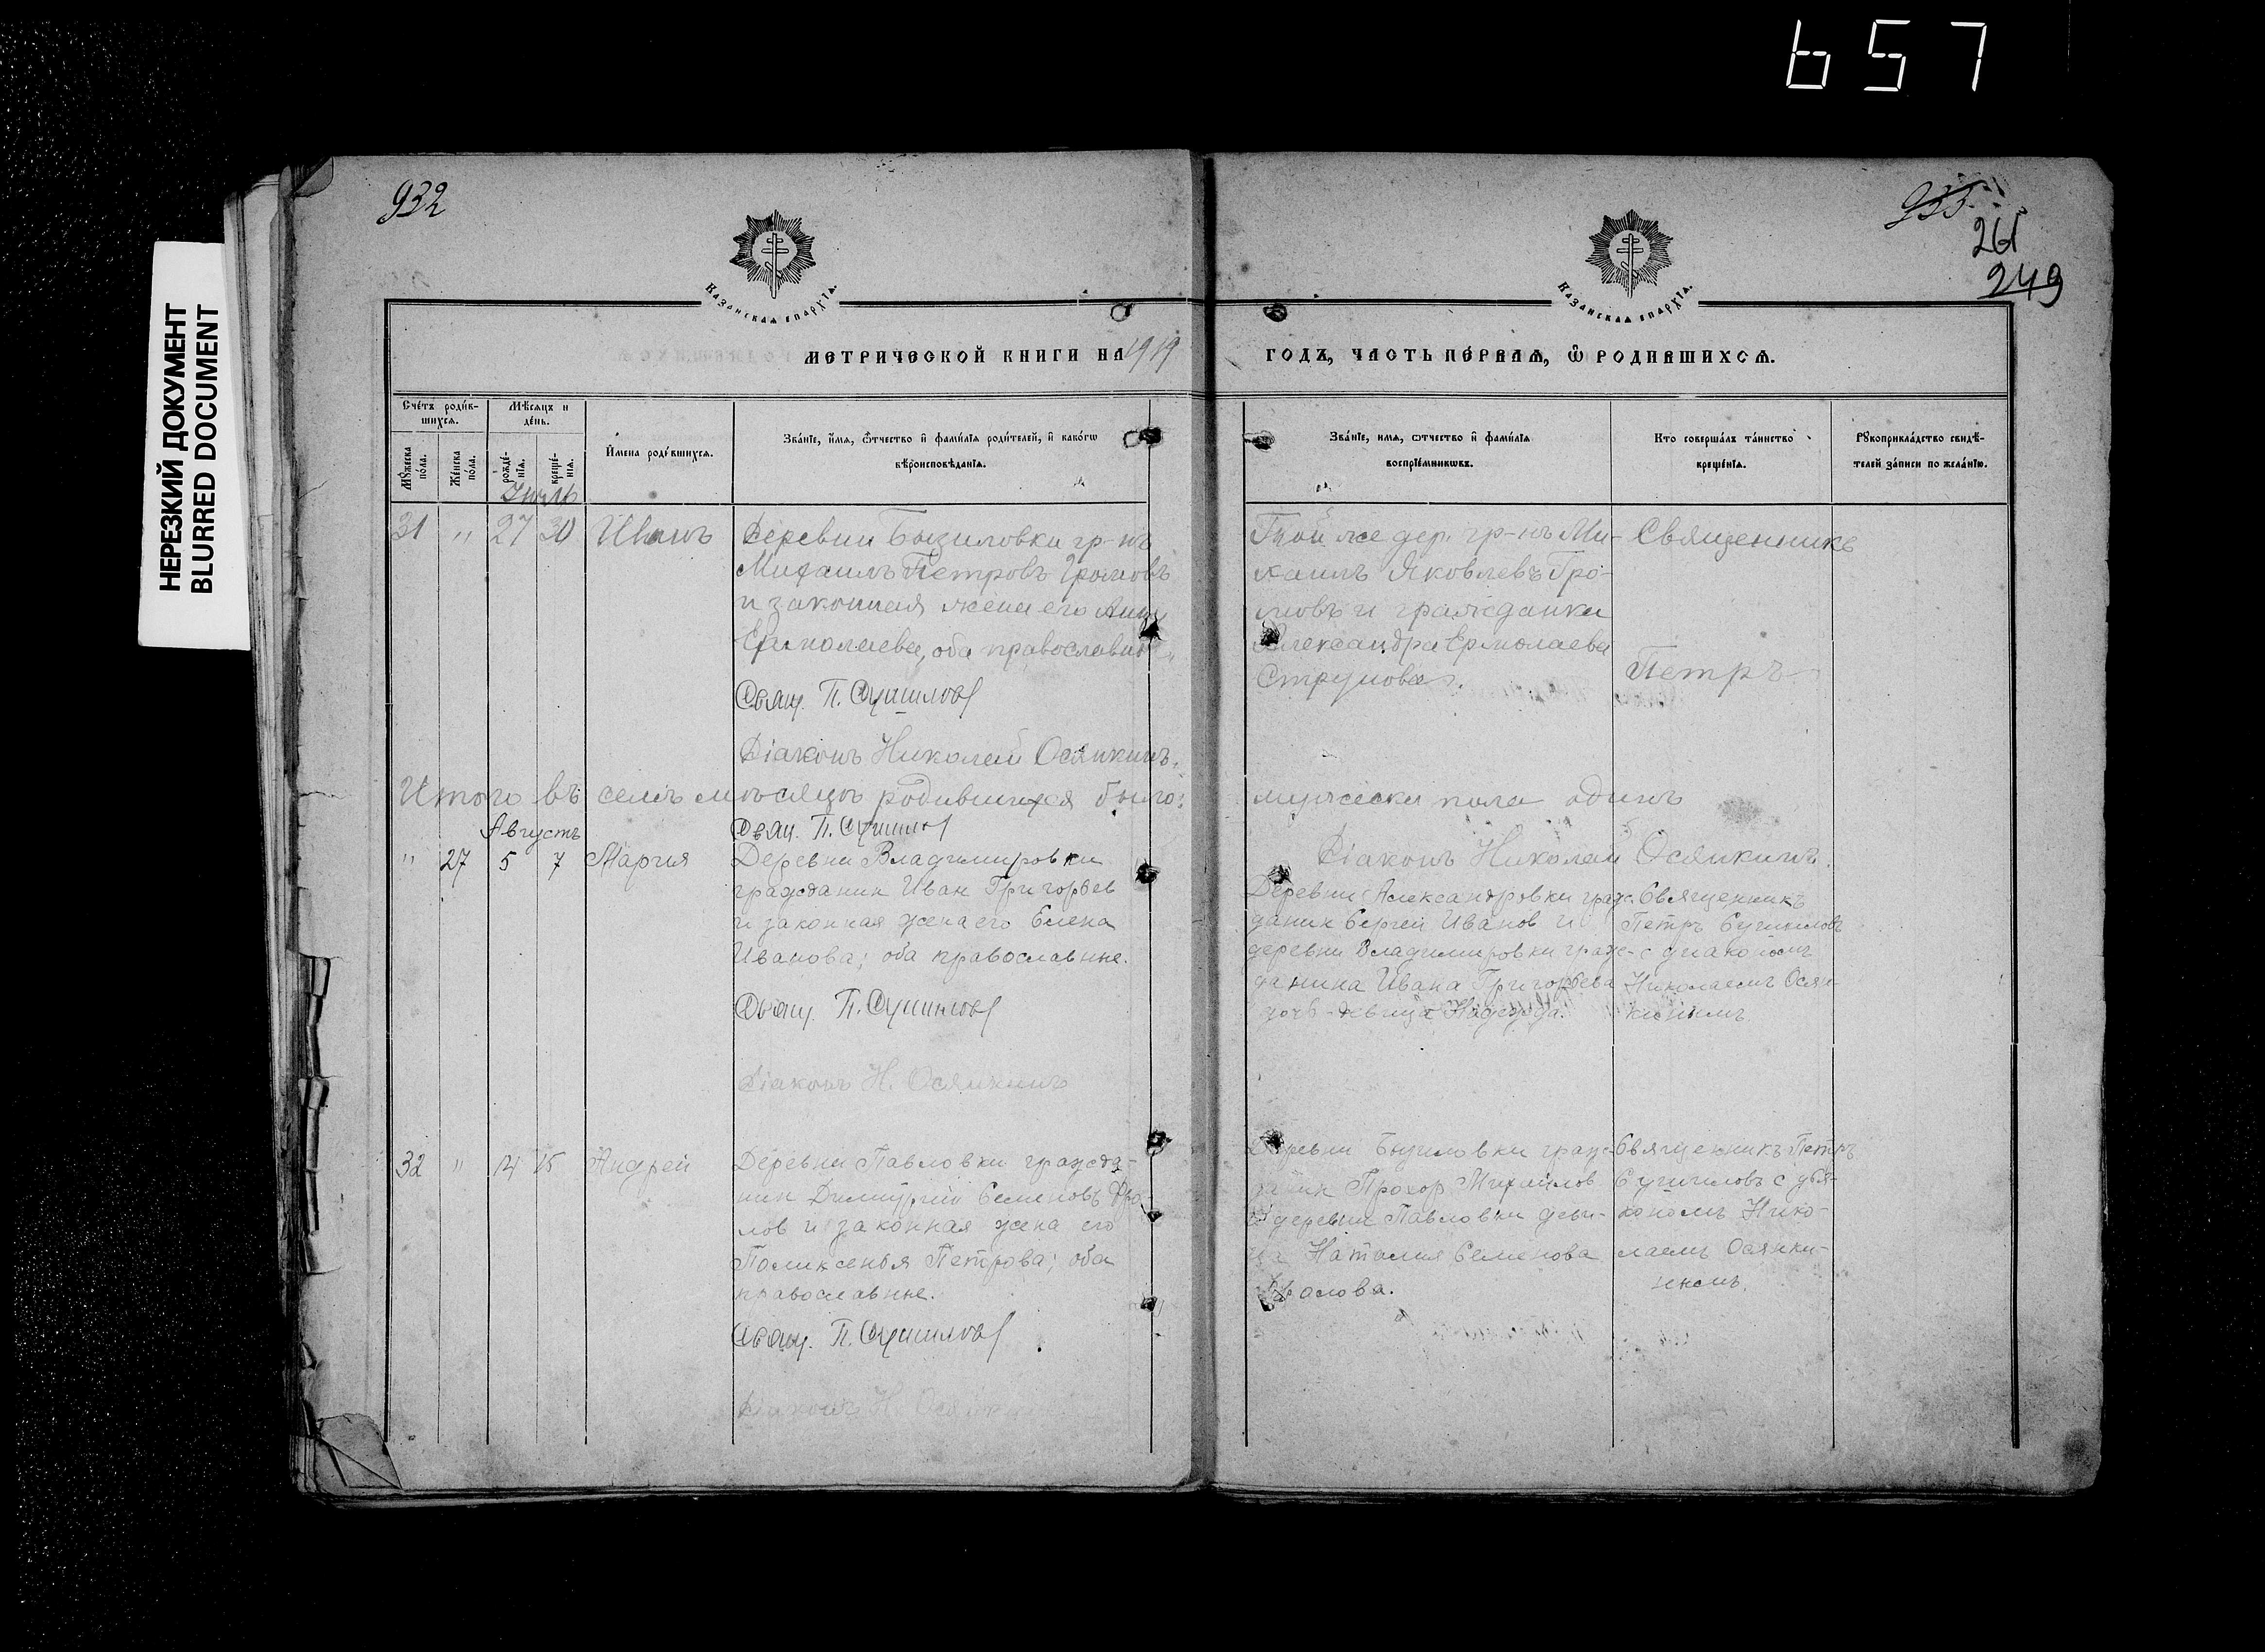 657
НЕРЕЗКИЙ ДОКУМЕНТ
BLURRED DOCUMENT
932
933
261
249
Казанская епархїа.
Казанская епархїа.
МЕТРИЧЕСКОЙ КНИГИ НА 1919
ГОДЪ, ЧАСТЬ ПЕ́РВАѦ, Ѿ РОДИВШИХСѦ.
Сче́тъ роди́в-
шихсѧ.
Мѣ́сяцъ и
де́нь.
Мꙋ́жеска
по́ла.
Же́нска
по́ла.
рожде́-
нїѧ.
креще́-
нїѧ.
И҆мена роди́вшихсѧ.
Зва́нїе, и҆́мѧ, ѻ҆́тчество и҆ фами́лїѧ роди́телей, и҆ како́гѡ
вѣроисповѣ́данїѧ.
Зва́нїе, имѧ, ѻтчество и҆ фами́лїѧ
воспрїе́мникѡвъ.
Кто соверша́лъ та́инство
креще́нїѧ.
Рꙋкоприкла́дство свидѣ́-
телей за́писи по жела́нїю.
Июль
31 " 27 30 Иванъ
Деревни Бызиловки гр-нъ
Михаилъ Петровъ Громовъ
и законная жена его Анна
Ермолаева, оба православн.
Свящ. П. Сушилов
Дiаконъ Николай Осянкинъ.
Той же дер. гр-нъ Ми-
хаилъ Яковлевъ Гро-
мовъ и гражданка
Александра Ермолаева
Струнова.
Священникъ
Петръ
Итого въ семъ мѣсяцѣ родившихся было:
мужеска пола одинъ
Свящ. П. Сушилов
Дiаконъ Николай Осянкинъ.
Августъ
" 27 5 7 Мария
Деревни Владимировки
гражданин Иван Григорьев
и законная жена его Елена
Иванова; оба православные.
Свящ. П. Сушилов
Дiаконъ Н. Осянкинъ
Деревни Александровки граж-
данин Сергей Иванов и
деревни Владимировки граж-
данина Ивана Григорьева
дочь - девица Надежда.
Священникъ
Петръ Сушиловъ
с диакономъ
Николаемъ Осян-
кинымъ
32 " 14 15 Андрей
Деревни Павловки гражда-
нин Димитрий Семеновъ Фро-
лов и законная жена его
Поликсенья Петрова; оба
православные.
Свящ. П. Сушилов
Дiаконъ Н. Осянкинъ
Деревни Бызиловки граж-
данин Прохор Михайлов
и деревни Павловки деви-
ца Наталия Семенова
Фролова.
Священникъ Петръ
Сушиловъ с дья-
кономъ Нико-
лаемъ Осянки-
нымъ.